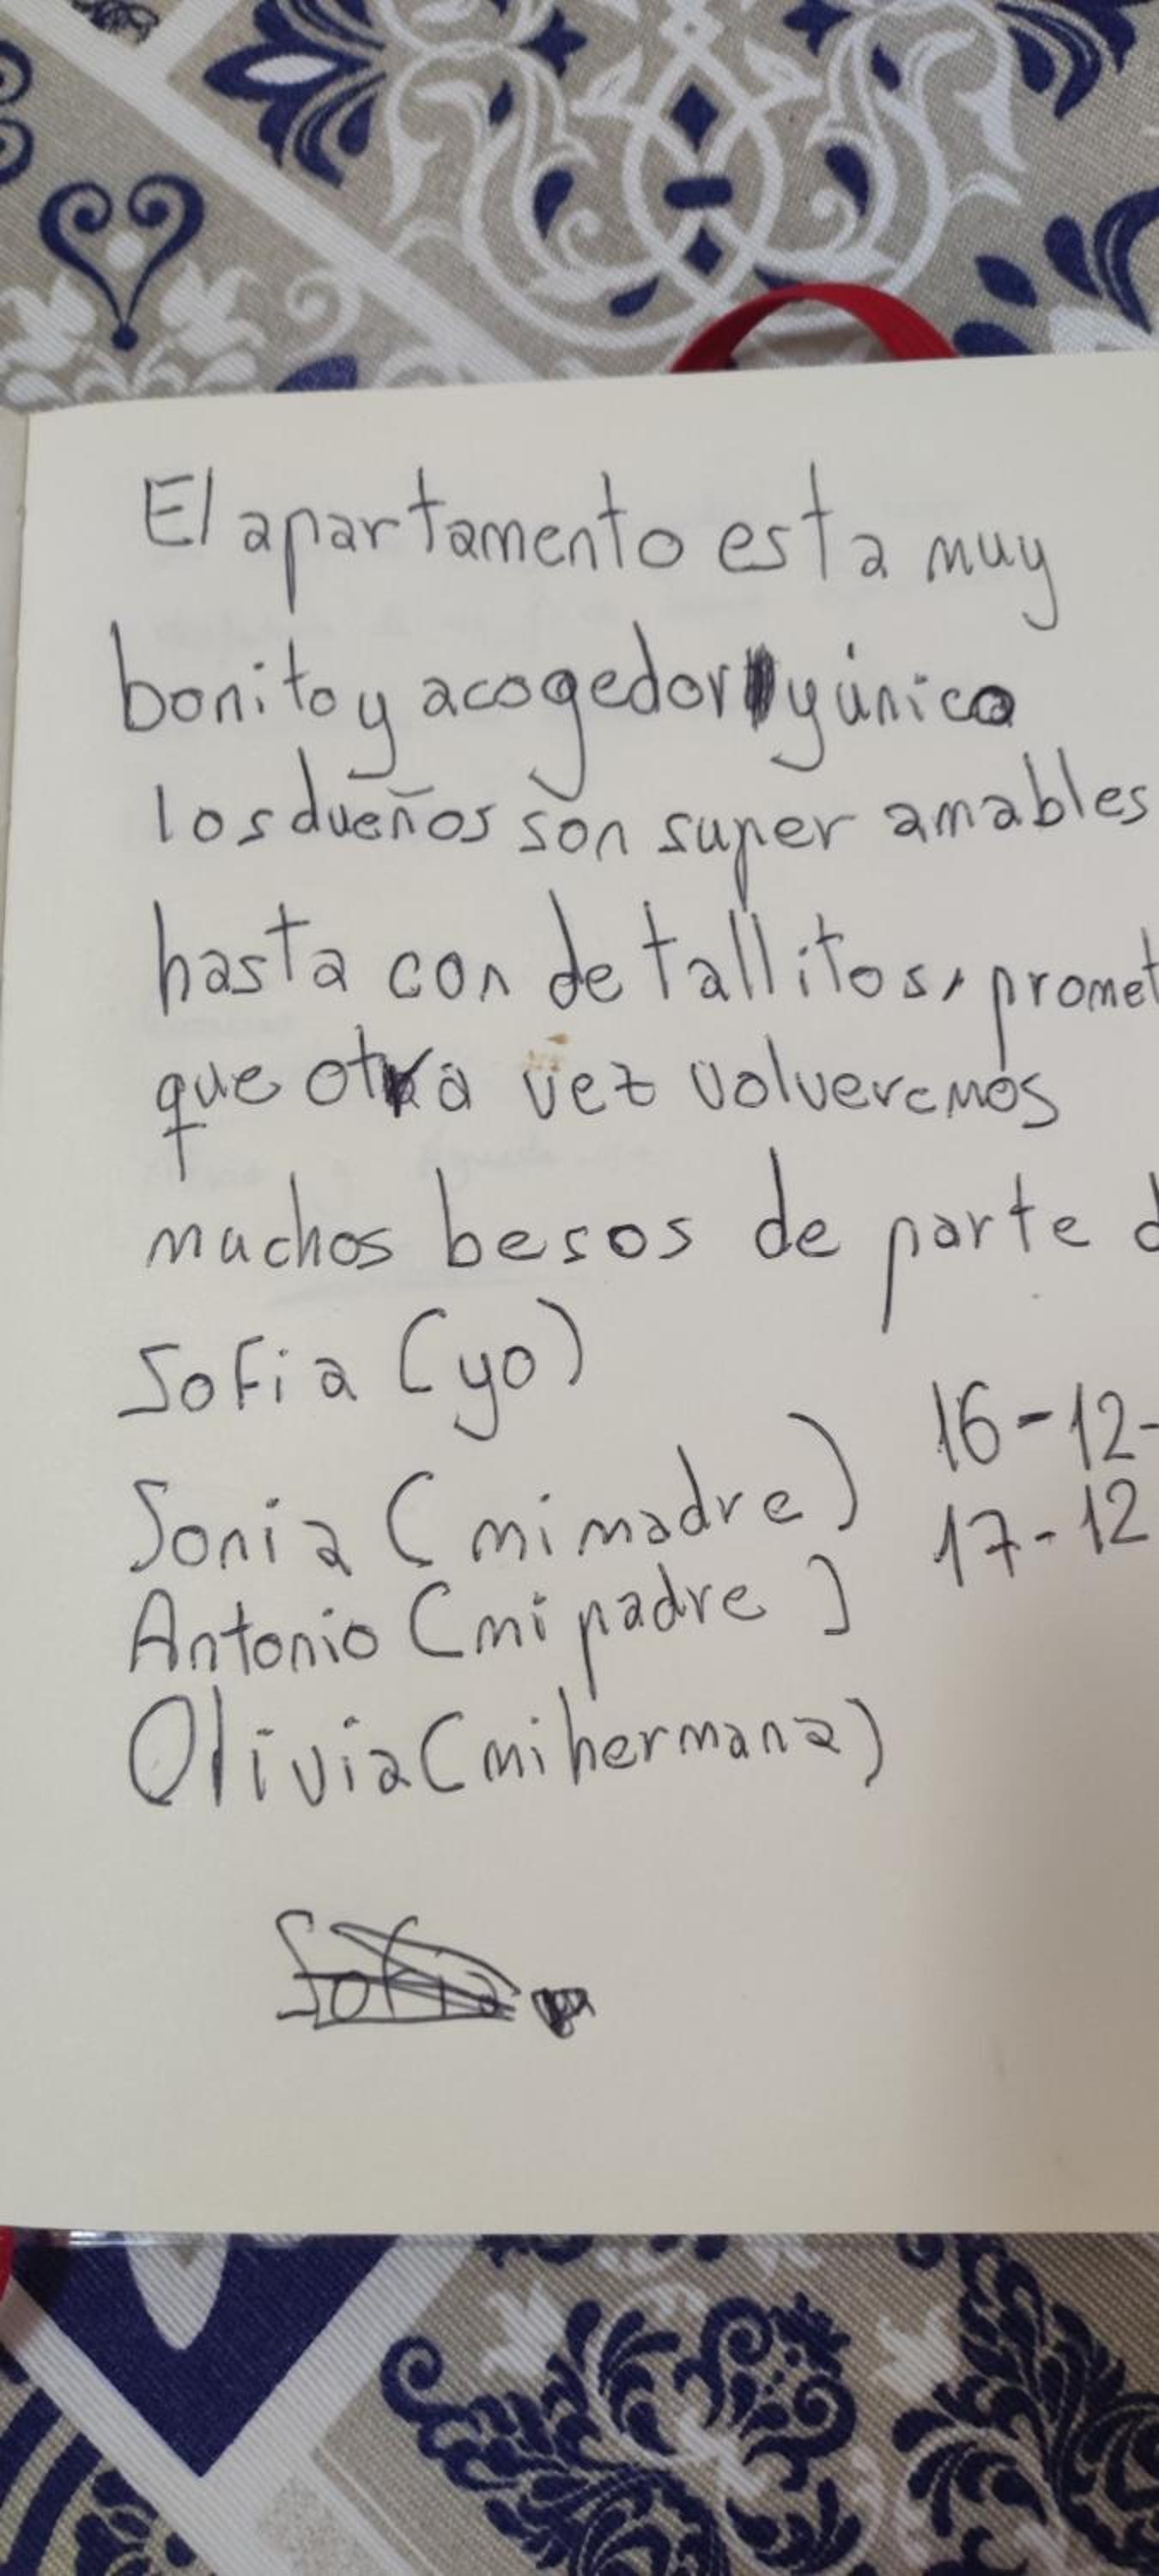 El apartamento esta muy
bonito y acogedor y único
los dueños son super amables
hasta con detallitos, promet
que otra vez volveremos
muchos besos de parte d
Sofia (yo)
16-12-
Sonia (mi madre)
17-12
Antonio (mi padre)
Olivia (mi hermana)
Sofia